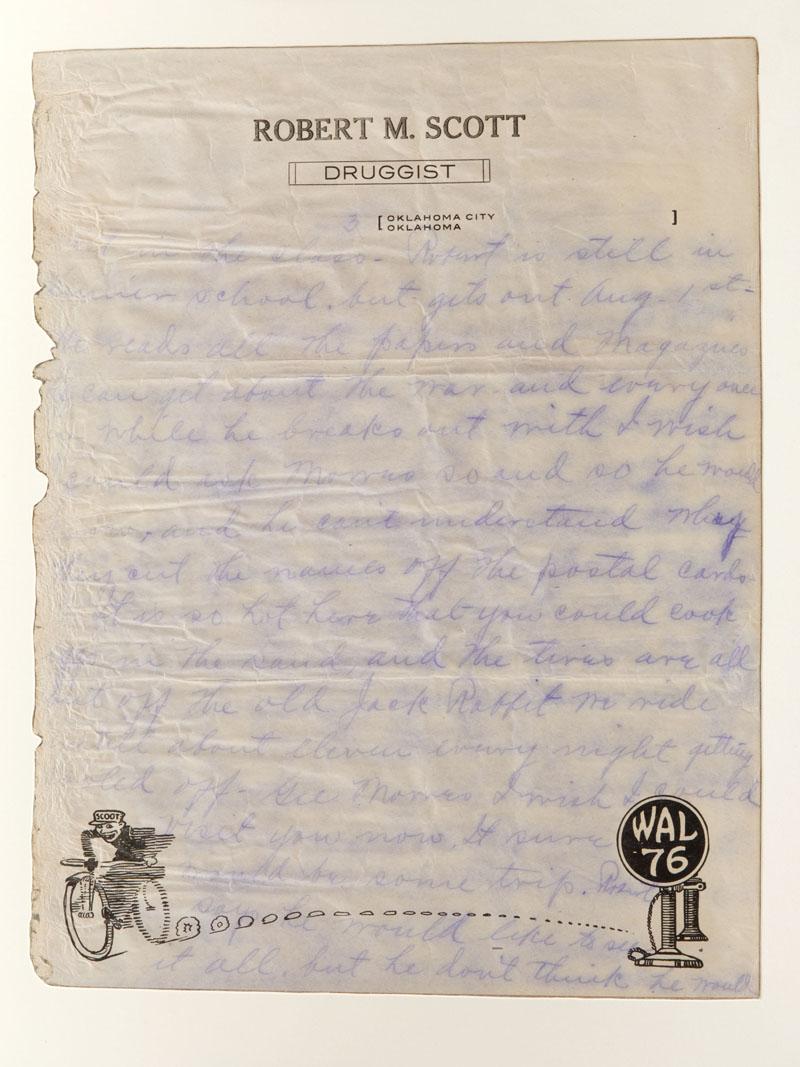 ROBERT M. SCOTT
DRUGGIST
3
[ OKLAHOMA CITY ]
OKLAHOMA
in the class - Robert is still in
school. but gets out Aug - 1st -
He reads all the papers and Magazines
can get about the war - and every once
while he breaks out with I wish
could ask Morris so and so he would
and he can't understand Why
they cut the names off the postal cards.
It is so hot here that you could cook
in the sand, and the tires are all
off the old Jack Rabbit we ride
about eleven every night getting
off - Gee Morris I wish I could
Visit you now. It sure
would be some trip. Robert
says he would like to see
it all. but he don't think he would
SCOOT
WAL
76